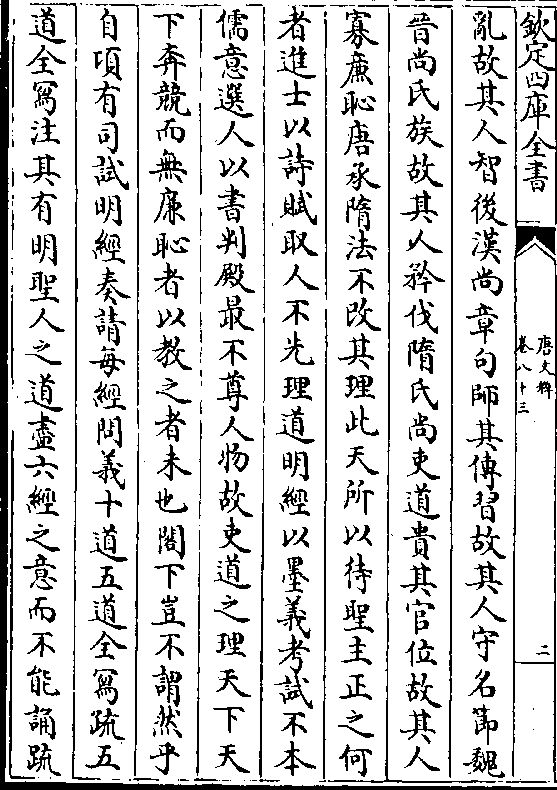 欽定四庫全書
唐文粹
卷八十三
二
亂故其人智後漢尚章句師其傳習故其人守名節魏
晉尚氏族故其人矜伐隋氏尚吏道貴其官位故其人
寡廉恥唐承隋法不改其理此天所以待聖主正之何
者進士以詩賦取人不先理道明經以墨義考試不本
儒意選人以書判殿最不尊人物故吏道之理天下天
下奔競而無廉恥者以教之者未也閣下豈不謂然乎
自項有司試明經奏請每經問義十道五道全寫疏五
道全寫注其有明聖人之道盡六經之意而不能誦疏